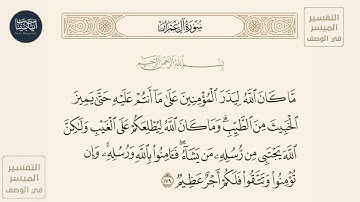 التفسير
الميسر
في الوصف
سُورَةُ آلِ عِمۡرَانَ
بِسۡمِ ٱللَّهِ ٱلرَّحۡمَٰنِ ٱلرَّحِيمِ
مَّا كَانَ ٱللَّهُ لِيَذَرَ ٱلۡمُؤۡمِنِينَ عَلَىٰ مَآ أَنتُمۡ عَلَيۡهِ حَتَّىٰ يَمِيزَ
ٱلۡخَبِيثَ مِنَ ٱلطَّيِّبِۗ وَمَا كَانَ ٱللَّهُ لِيُطۡلِعَكُمۡ عَلَى ٱلۡغَيۡبِ وَلَٰكِنَّ
ٱللَّهَ يَجۡتَبِي مِن رُّسُلِهِۦ مَن يَشَآءُۖ فَـَٔامِنُواْ بِٱللَّهِ وَرُسُلِهِۦۚ وَإِن
تُؤۡمِنُواْ وَتَتَّقُواْ فَلَكُمۡ أَجۡرٌ عَظِيمٞ ١٧٩
التفسير
الميسر
في الوصف